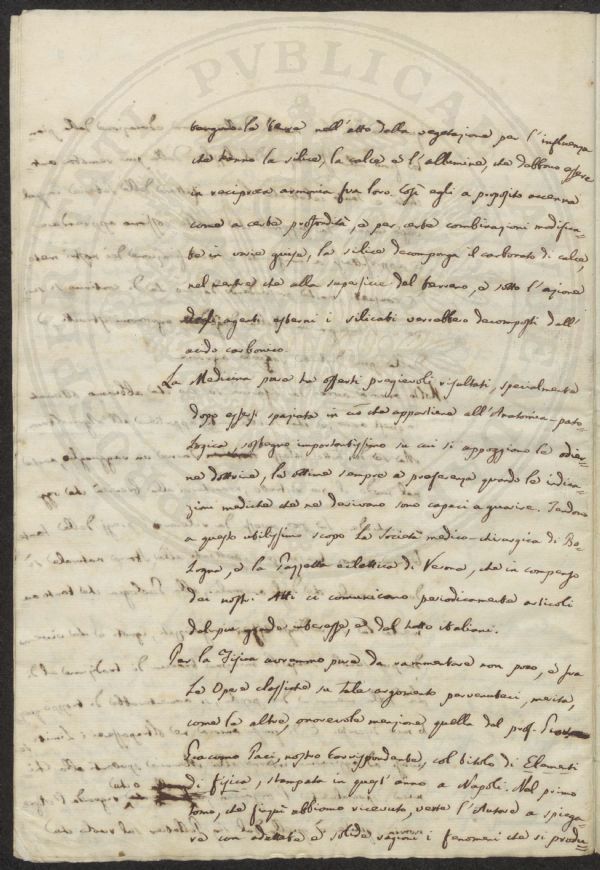 tengado le terre nell'atto della vegetazione per l'influenza
che hanno la silice, la calce e l'allumina, che debbono essere
in reciproca armonia fra loro. Così egli a proposito accenna
come a certe profondità, e per certe combinazioni modifica-
te in varie guise, la silice decomponga il carbonato di calce,
nel mentre che alla superficie del terreno, e sotto l'azione
degli agenti esterni i silicati verrebbero decomposti dall'
acido carbonico.
La Medicina pure ha offerti pregievoli risultati, specialmente
dopo essersi spaziata in ciò che appartiene all'Anatomia-pato-
logica, sostegno importantissimo su cui si appoggiano le odier-
ne dottrine, le ottime sempre a preferenza quando le indica-
zioni mediche che ne derivano sono capaci a guarire. Tendono
a questo utilissimo scopo la Società medico-chirurgica di Bo-
logna, e la Gazzetta eclettica di Verona, che in compenso
dei nostri Atti ci comunicano periodicamente articoli
del più grande interesse, e del tutto italiani.
Per la Fisica avremmo pure da rammentare non poco, e fra
le Opere classiche su tale argomento pervenuteci, merita,
come le altre, onorevole menzione quella del prof.
Giacomo Paci, nostro Corrispondente, col titolo di Elementi
di Fisica, stampata in quest'anno a Napoli. Nel primo
tomo, che finquì abbiamo ricevuto, verte l'Autore a spiega-
re con adattate e solide ragioni i fenomeni che si produ-
PVBLICA